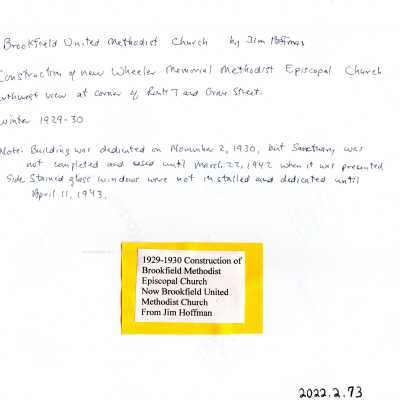 Brookfield United Methodist Church by Jim Hoffman
Construction of new Wheeler Memorial Methodist Episcopal Church
Northwest view at corner of Route 7 and Grove Street.
Winter 1929-30
Note: Building was dedicated on November 2, 1930, but Sanctuary was
not completed and used until March 22, 1942 when it was presented
Side Stained glass windows were not installed and dedicated until
April 11, 1943.
1929-1930 Construction of
Brookfield Methodist
Episcopal Church
Now Brookfield United
Methodist Church
From Jim Hoffman
2022.2.73